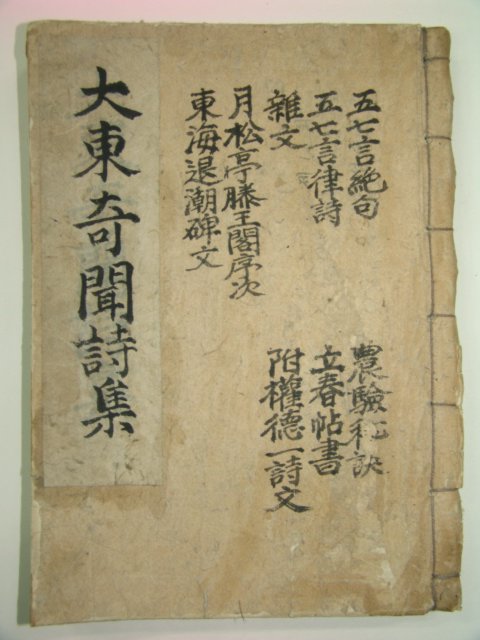 五七言絶句
五七言律詩
雜文
月松亭滕王閣序次
東海退潮碑文
農驗秘訣
立春帖書
附權德一詩文
大東奇聞詩集